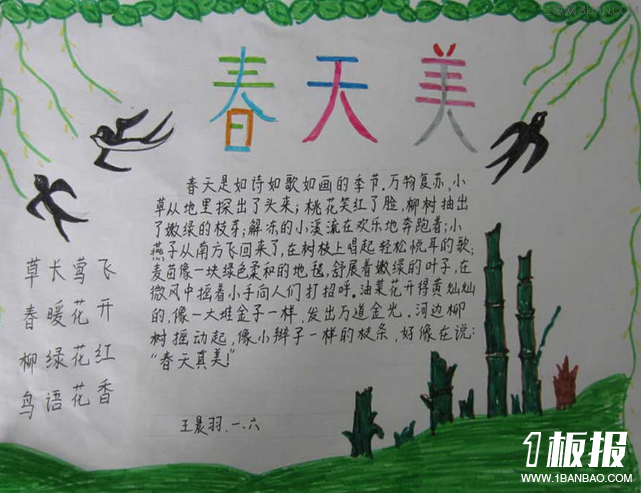 春天美
春天是如诗如歌如画的季节,万物复苏,小
草从地里探出了头来;桃花笑红了脸,柳树抽出
了嫩绿的枝芽;解冻的小溪流在欢乐地奔跑着;小
燕子从南方飞回来了,在树枝上唱起轻松悦耳的歌;
麦苗像一块绿色柔和的地毯,舒展着嫩绿的叶子,在
微风中摇着小手向人们打招呼。油菜花开得黄灿灿
的,像一大堆金子一样,发出万道金光。河边柳
树摇动起,像小辫子一样的枝条,好像在说:
“春天真美!”
草长莺飞
春暖花开
柳绿花红
鸟语花香
王晨羽.一.六
1板报
WWW.1BANBAO.COM